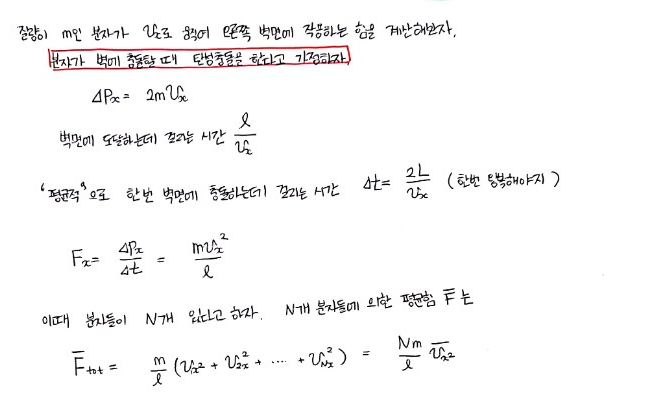 질량이 m인 분자가 Vx로 움직여 오른쪽 벽면에 작용하는 힘을 계산해보자.
분자가 벽에 충돌할 때 탄성충돌을 한다고 가정하자.
ΔPx = 2mVx
벽면에 도달하는데 걸리는 시간 l/Vx
"평균적"으로 한번 벽면에 충돌하는데 걸리는 시간 Δt = 2L/Vx (한번 왕복해야지)
Fx = ΔPx/Δt = mVx²/l
이때 분자들이 N개 있다고 하자. N개 분자들에 의한 평균힘 F̅ 는
F̅tot = m/l (Vx² + V2x² + .... + VNx²) = Nm/l V̅x²